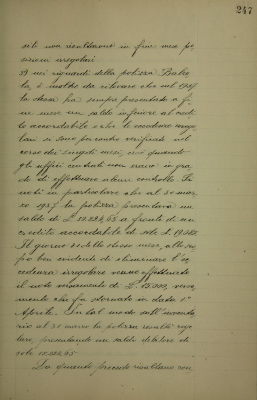 247
siti non risultavano in fine mese po
sizioni irregolari.
59 nei riguardi della polizza
ta, è risulta da rilevare che nel 1937
la stessa ha sempre presentato a fi
ne mese un saldo inferiore al credi
to accordabile e che le eventuali irrego
lari si sono pertanto verificate nel
corso dei singoli mesi, cioè quando
gli uffici centrali non erano in gra
do di effettuare alcun controllo. Si
noti in particolare che al 30 mar
zo 1937 la polizza presentava un
saldo di £ a fronte di un
credito accordabile di sole £
Il giorno stesso mese, allo sco
po ben evidente di eliminare l'ec
cedenza irregolare venne effettuato
il noto versamento di £ 15.000, versa
mento che fu stornato in data 1°
Aprile. In tal modo all'inventa
rio al 31 marzo la polizza risultò rego
lare, presentando un saldo debitore di
sole
Da quanto precede risultano con